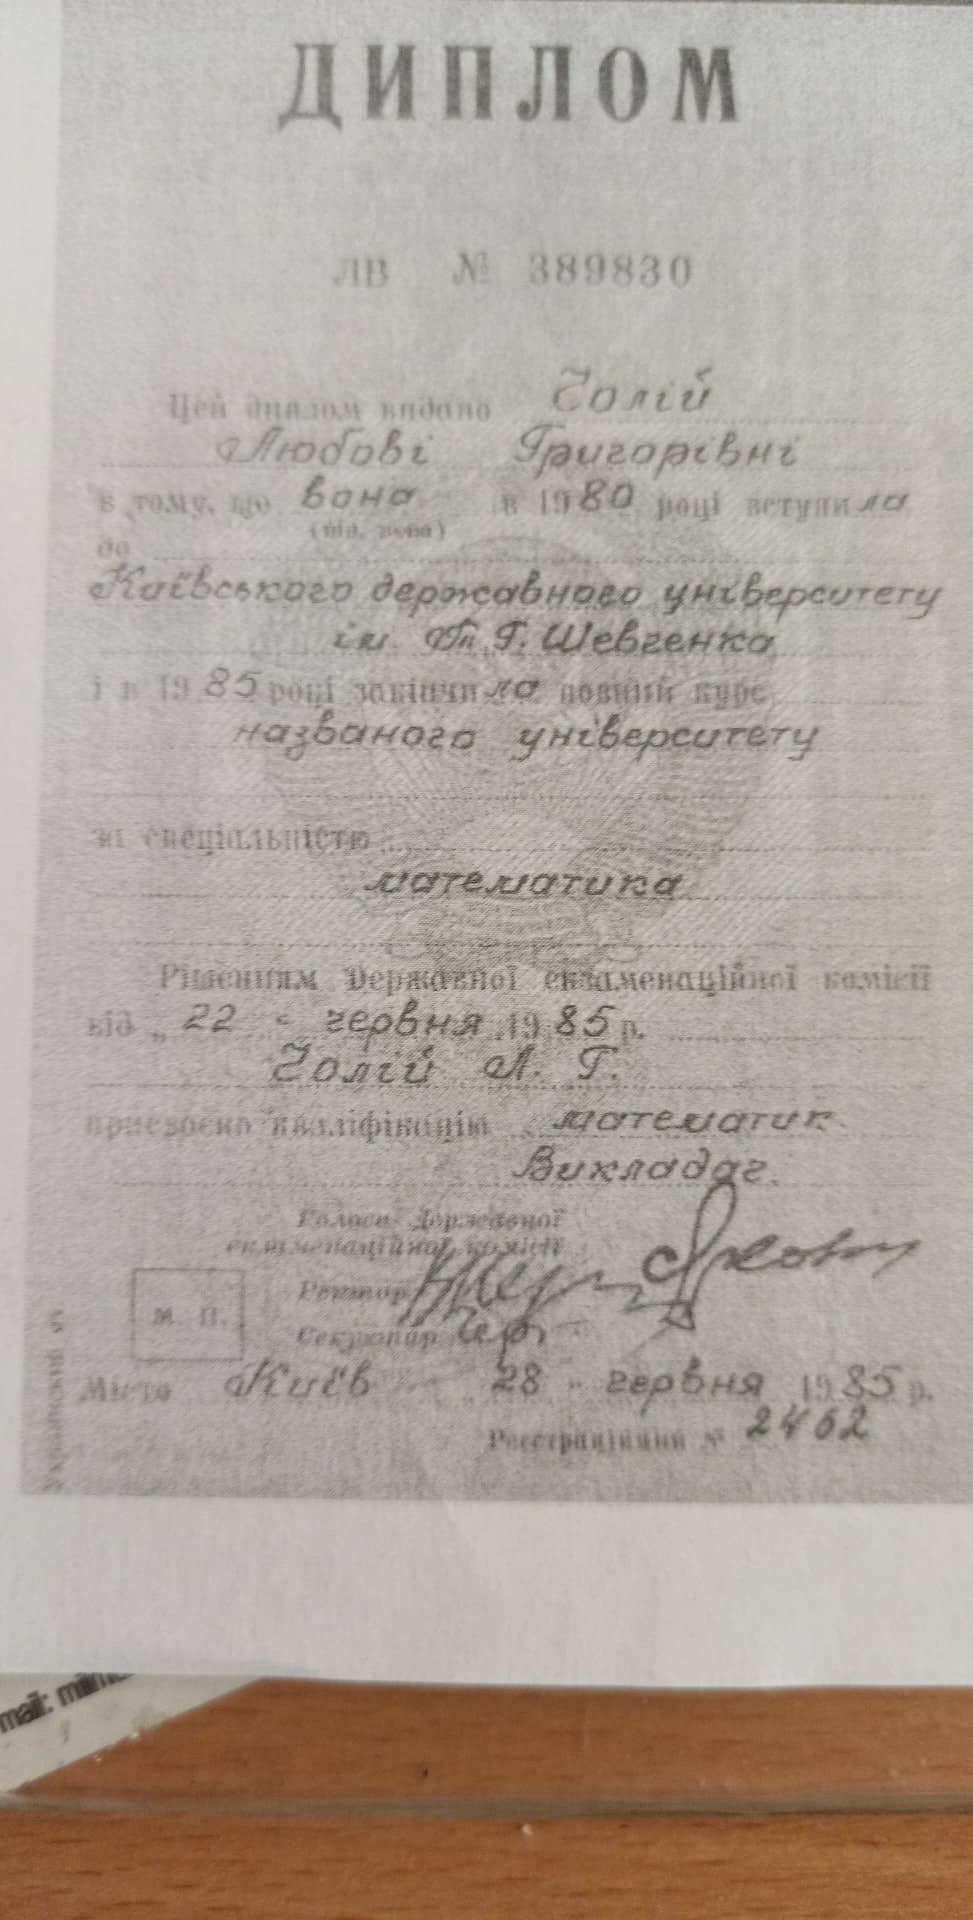 ДИПЛОМ
ЛВ № 389830
Цей диплом видано Чолій
Любові Григорівні
в тому, що вона в 1980 році вступила
(він, вона)
до
Київського державного університету
ім. Т. Г. Шевченка
і в 1985 році закінчила повний курс
названого університету
за спеціальністю
математика
Рішенням Державної екзаменаційної комісії
від „ 22 “ червня 1985 р.
Чолій Л. Г.
присвоєно кваліфікацію математик.
Викладач.
Голова Державної
екзаменаційної комісії
Ректор
М. П.
Секретар
Місто Київ „ 28 “ червня 1985 р.
Реєстраційний № 2462
Український
mail: